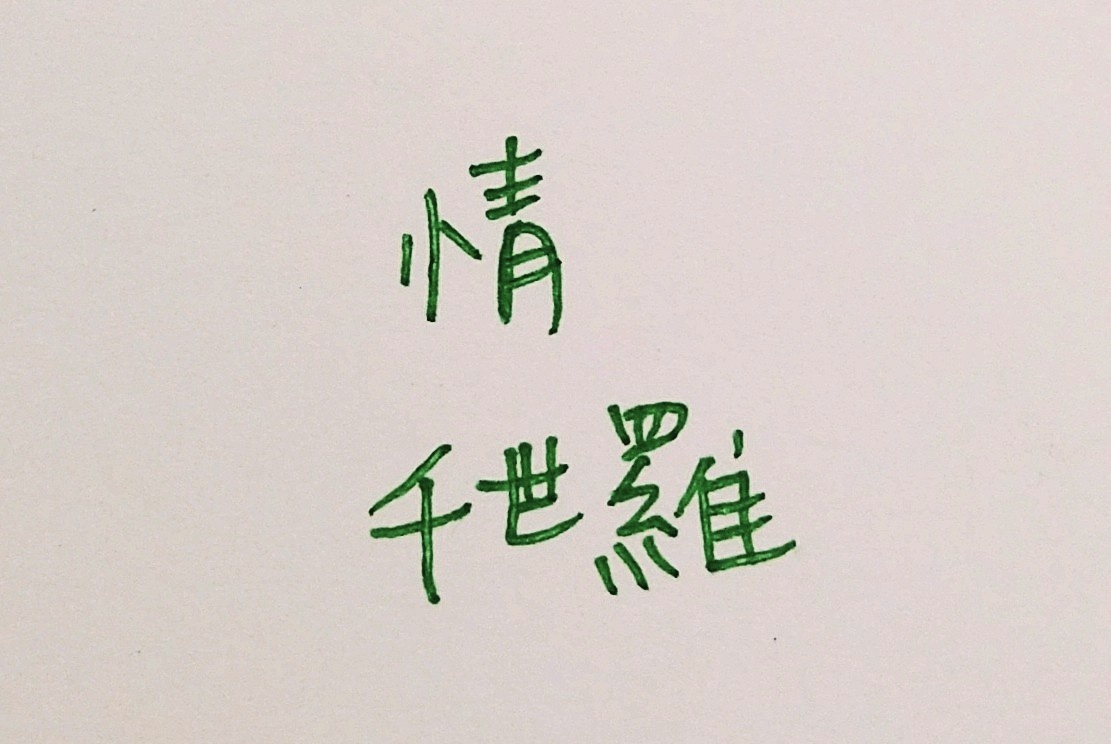 情
千世羅